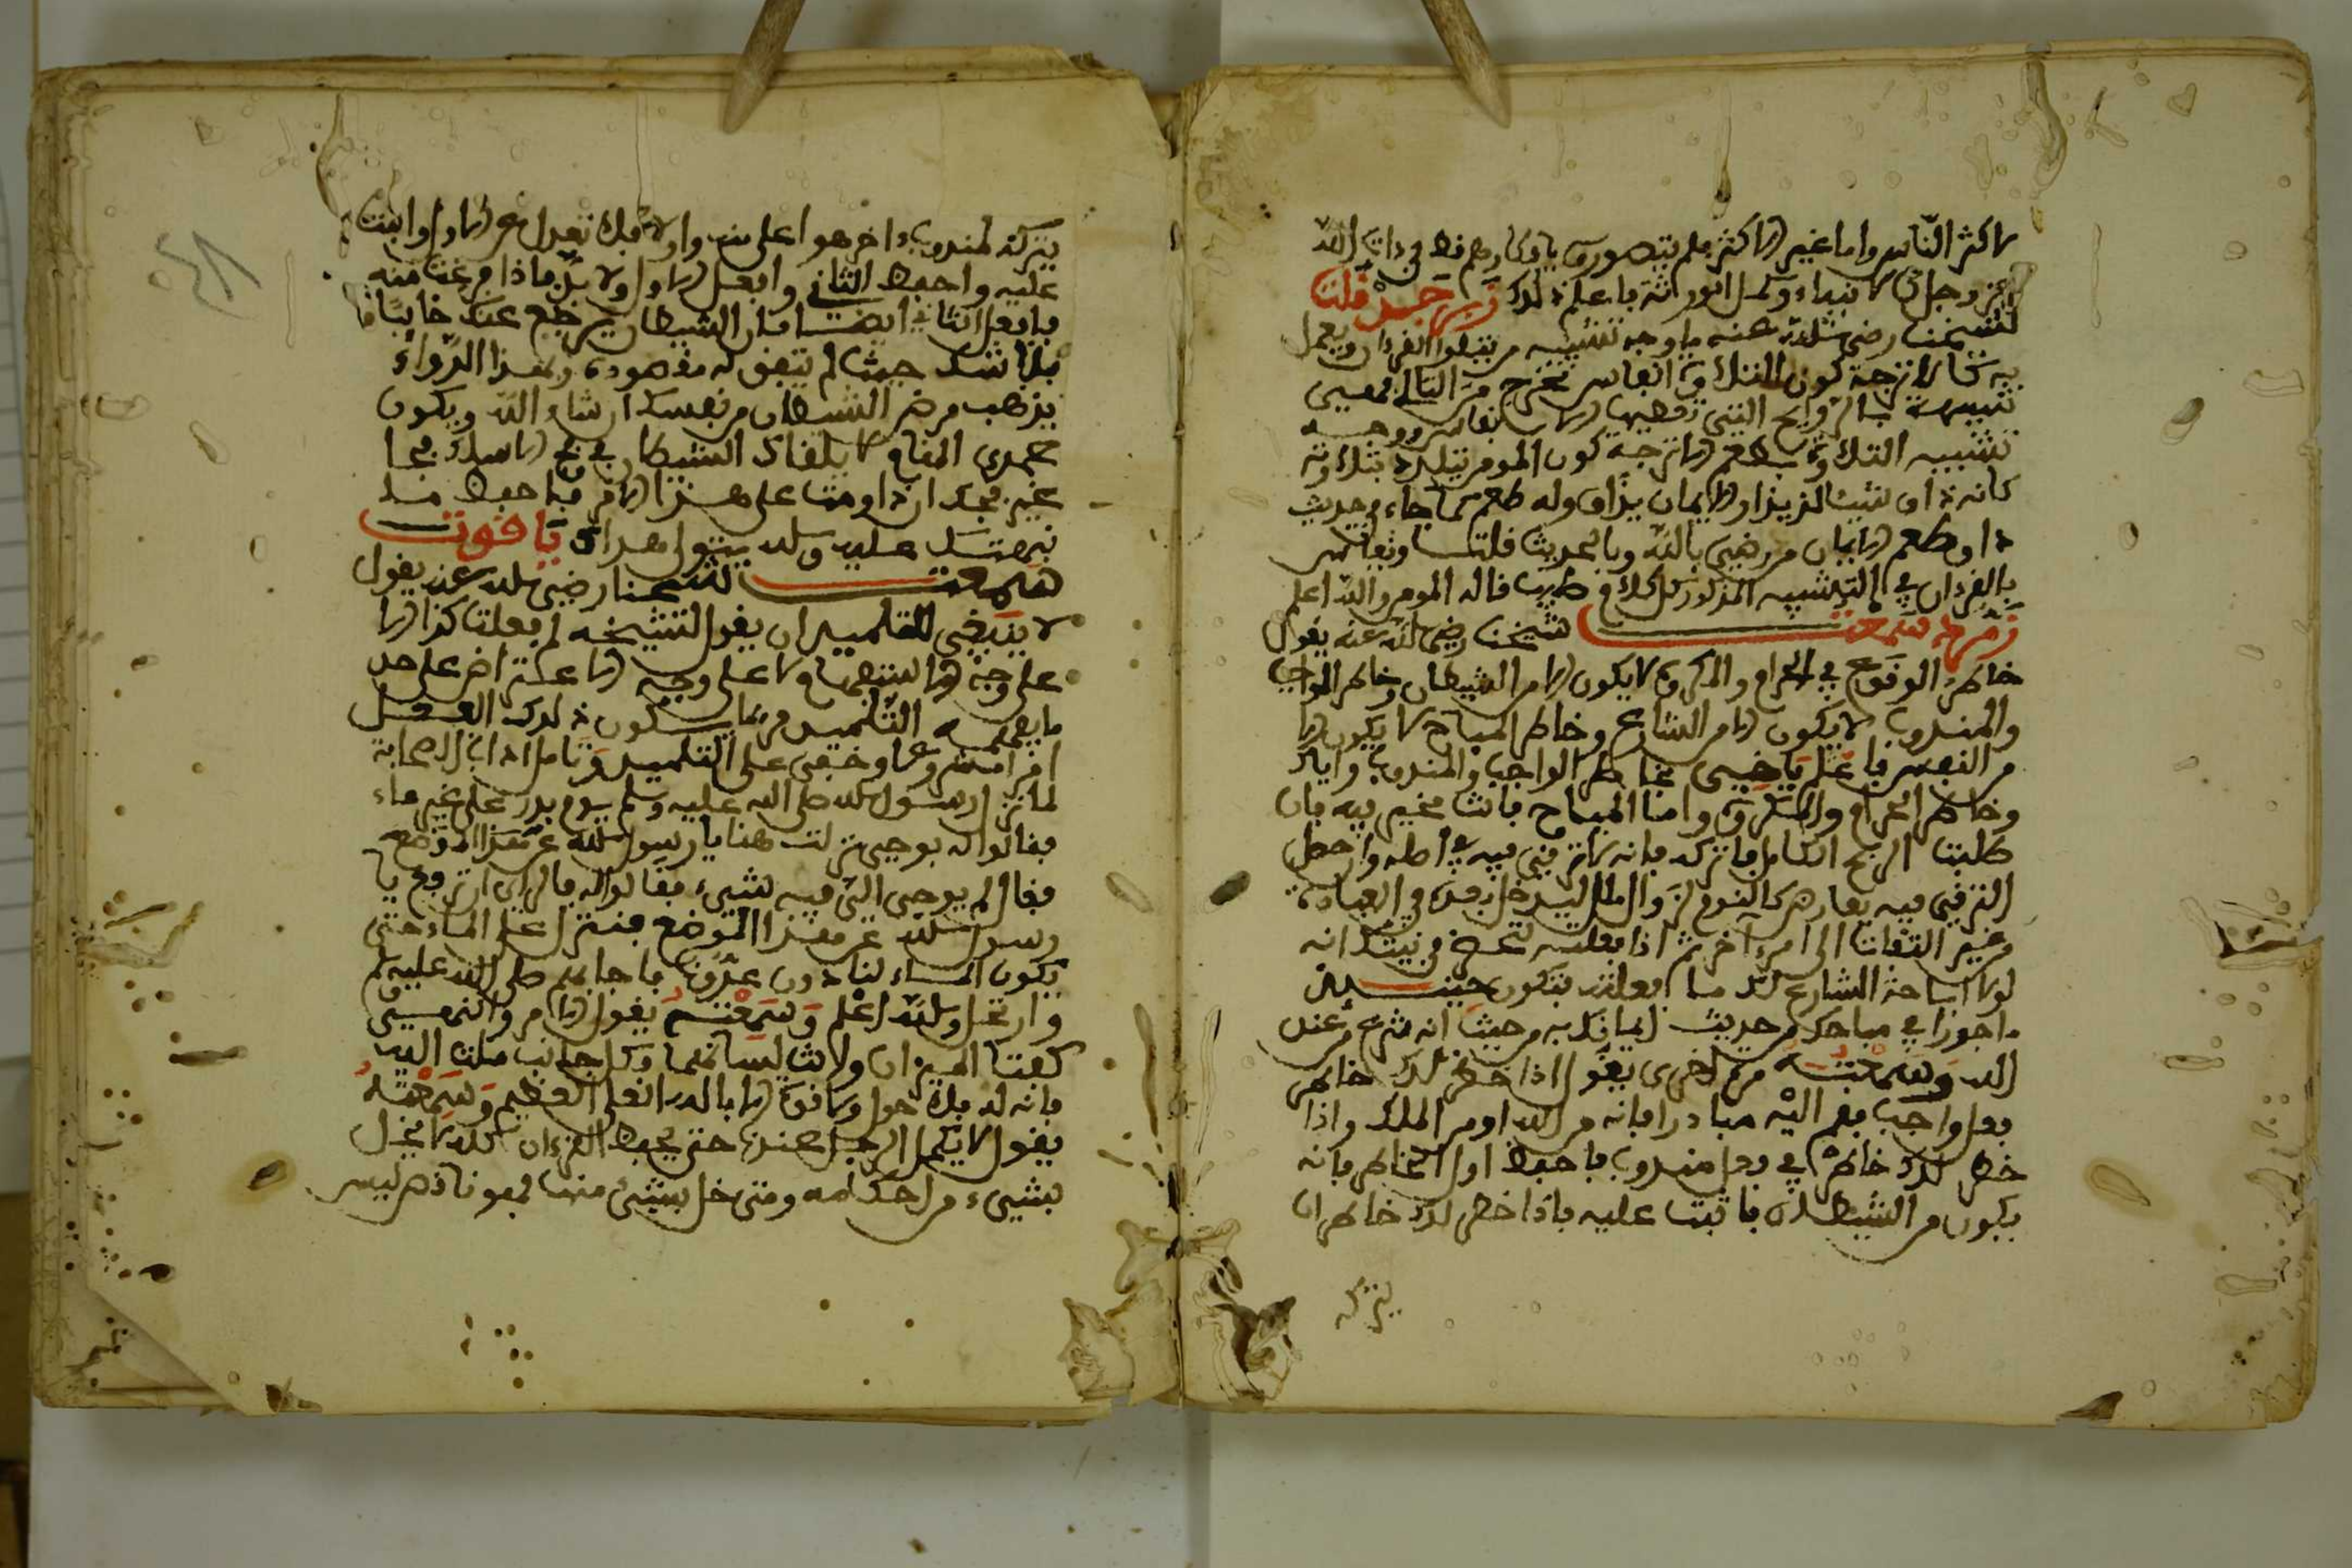 لاكثر الناس واما غير الاكثر فلم يتصوروا بافكارهم قط في ذات الله
عز وجل كالانبياء وكمل الورثة فاعلم ذلك زبرجد قلت
لشيخنا رضي الله عنه ما وجه تشبيه من يتلوا القرءان ويعمل
به كالاترجة كون التلاوة انفاس تخرج من التالي فهي
تشبيهه بالروايح التي تعطيها الانفاس ووجه
تشبيه التلاوة بطعم الاترجة كون المومن يتلذذ بتلاوته
كانه ذاق شيئا لذيذا والايمان يذاق وله طعم كما جاء في حديث
ذاق طعم الايمان من رضي بالله ربا الحديث قلت
بالقرءان في التشبيه المذكور كل كلام طيب قاله المومن والله اعلم
زمرد سمعت شيخنا رضي الله عنه يقول
خاطر الوقوع في الحرام والمكروه لا يكون الا من الشيطان وخاطر الواجب
والمندوب لا يكون الا من الشارع وخاطر المباح لا يكون الا
من النفس فاعمل يا اخي بخاطر الواجب والمندوب واياك
وخاطر الحرام والمكروه واما المباح فانت مخير فيه فان
طلبت الربح الكامل فاتركه فانه لا ترقي فيه في اصله واجعل
الترقي فيه بعارض كالنوم لزوال الملل ليدخل بعده في العبادة
من غير التفات الى امر اخر ثم اذا فعلته تحضر في نيتك انه
لولا اباحة الشارع لك ما فعلته فتكون حينئذ
ماجورا في مباحك من حديث ايمانك به من حيث انه شرع من عند
الله وسمعته مرة اخرى يقول اذا خطر لك خاطر
فعل واجب فقم اليه مبادرا فانه من الله او من الملك واذا
خطر لك خاطر في فعل مندوب فاحفظ اول الخاطر فانه
يكون من الشيطان فاثبت عليه فاذا خطر لك خاطر ان
يتركه
يتركه لمندوب ءاخر هو اعلى منه واولا فلا تعدل عن الاول واثبت
عليه واحفظ الثاني وافعل الاول ولا بد فاذا فرغت منه
فافعل الثاني ايضا فان الشيطان يرجع عنك خايبا
بلا شك حيث لم يتفق له مقصوده وبهذا الدواء
يذهب مرض الشيطان من نفسك ان شاء الله ويكون
عمري المقام لا يلقاك الشيطان في فج الا سلك فجا
غير فجك ان داومت على هذا الامر فاحفظ ما
نبهتك عليه والله يتولى هداك ياقوت
سمعت شيخنا رضي الله عنه يقول
لا ينبغي للتلميذ ان يقول لشيخه لم فعلت كذا الا
على وجه الاستفهام لا على وجه الاعتراض على حد
ما يفهمه التلميذ فربما يكون ذلك الفعل
امرا مشروعا وخفي على التلميذ وتامل اداب الصحابة
لما نزل رسول الله صلى الله عليه وسلم يوم بدر على غير ماء
فقالوا له بوحي نزلت هنا يا رسول الله عن هذا الموضع
فقال لم يوحى الي فيه بشيء فقالوا له فالراي ان ترفع يا
رسول الله عن هذا الموضع فننزل على الماء حتى
يكون الماء لنا دون عدونا فاجابهم صلى الله عليه وسلم
وارتحل والله اعلم وسمعته يقول الامر والنهي
كفتا الميزان ولانت لسانهما وكل جانب ملت اليه
فانه لك فلا حول ولا قوة الا بالله العلي العظيم وسمعته
يقول لا يكمل الرجل عندنا حتى يحفظ القرءان كله لا يخل
بشيء من احكامه ومتى خل بشيء منها فهو ناقص ليس